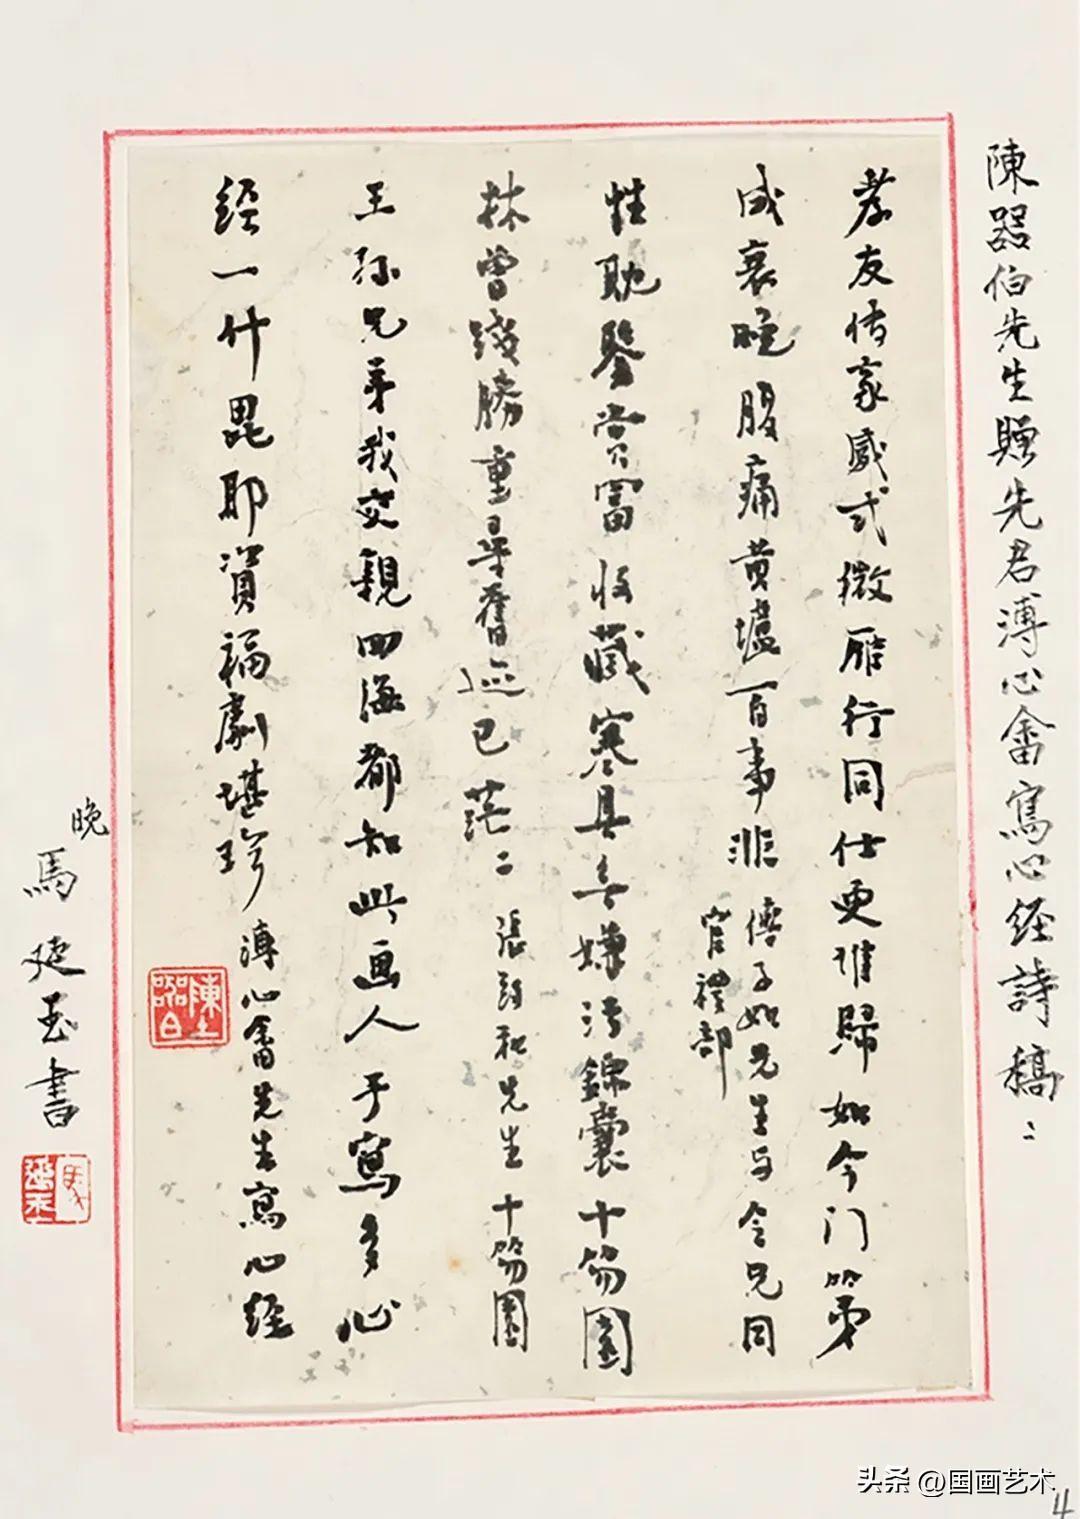 陳器伯先生贈先君溥心畬寫心经詩稿〻
孝友传家感式微雁行同仕更難歸如今门第
成衰晚腹痛黄壚百事非
傅子如兄生与令兄同
官禮部
性耽鑒賞富收藏寒具無嫌污錦囊十笏園
林曾踐勝重尋舊迹已茫〻
張
和先生十笏園
王孫兄弟我交親四海都知此画人手寫多心
经一什毘耶資福劇堪珍
溥心畬先生寫心經
陳土
器白
晚
馬廷玉書
馬
头条 @国画艺术
4